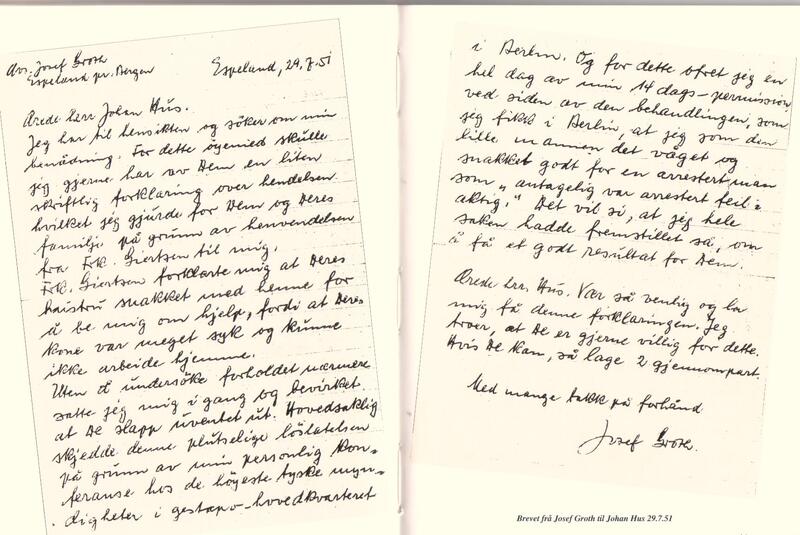 Avs. Josef Groth
Espeland pr. Bergen
Espeland, 29.7.51
Ærede herr Johan Hus.
Jeg har til hensikten og söker om min
benådning. For dette öyemied skulle
jeg gjerne har av Dem en liten
skriftlig forklaring over hendelsen
hvilket jeg gjurde for Dem og Deres
familje på grunn av henvendelsen
fra Frk. Giertsen til mig.
Frk. Giertsen forklarte mig at Deres
haustru snakket med henne for
å be mig om hjelp, fordi at Deres
kone var meget syk og kunne
ikke arbeide hjemme.
Uten å undersöke forholdet nærmere
satte jeg mig i gang og bevirket.
at De slapp uventet ut. Hovedsaklig
skjedde denne plutselige löslatelsen
på grunn av min personlig kon-
feranse hos de höyeste tyske myn-
digheter i gestapo-hovedkvarteret
i Berlin. Og for dette ofret jeg en
hel dag av min 14 dags-permission,
ved siden av den behandlingen, som
jeg fikk i Berlin, at jeg som den
lille mannen det våget og
snakket godt for en arrestert man
som „antagelig var arrestert feil-
aktig." Det vil si, at jeg hele
saken hadde fremstillet så, om
å få et godt resultat for Dem.
Ærede hrr. Hus. Vær så venlig og la
mig få denne forklaringen. Jeg
troer, at De er gjerne villig for dette.
Hvis De kan, så lage 2 gjennompart.
Med mange takk på forhånd
Josef Groth.
Brevet frå Josef Groth til Johan Hus 29.7.51